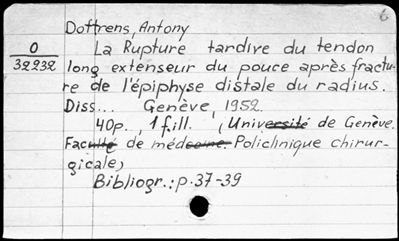 6
Dottrens, Antony
O
32232
La Rupture tardive du tendon
long extenseur du pouce après fractu-
re de l'épiphyse distale du radius.
Diss... Genève, 1952.
40p., 1 fill. (Université de Genève.
Faculté de médecine. Policlinique chirur-
gicale)
Bibliogr.: p. 37-39